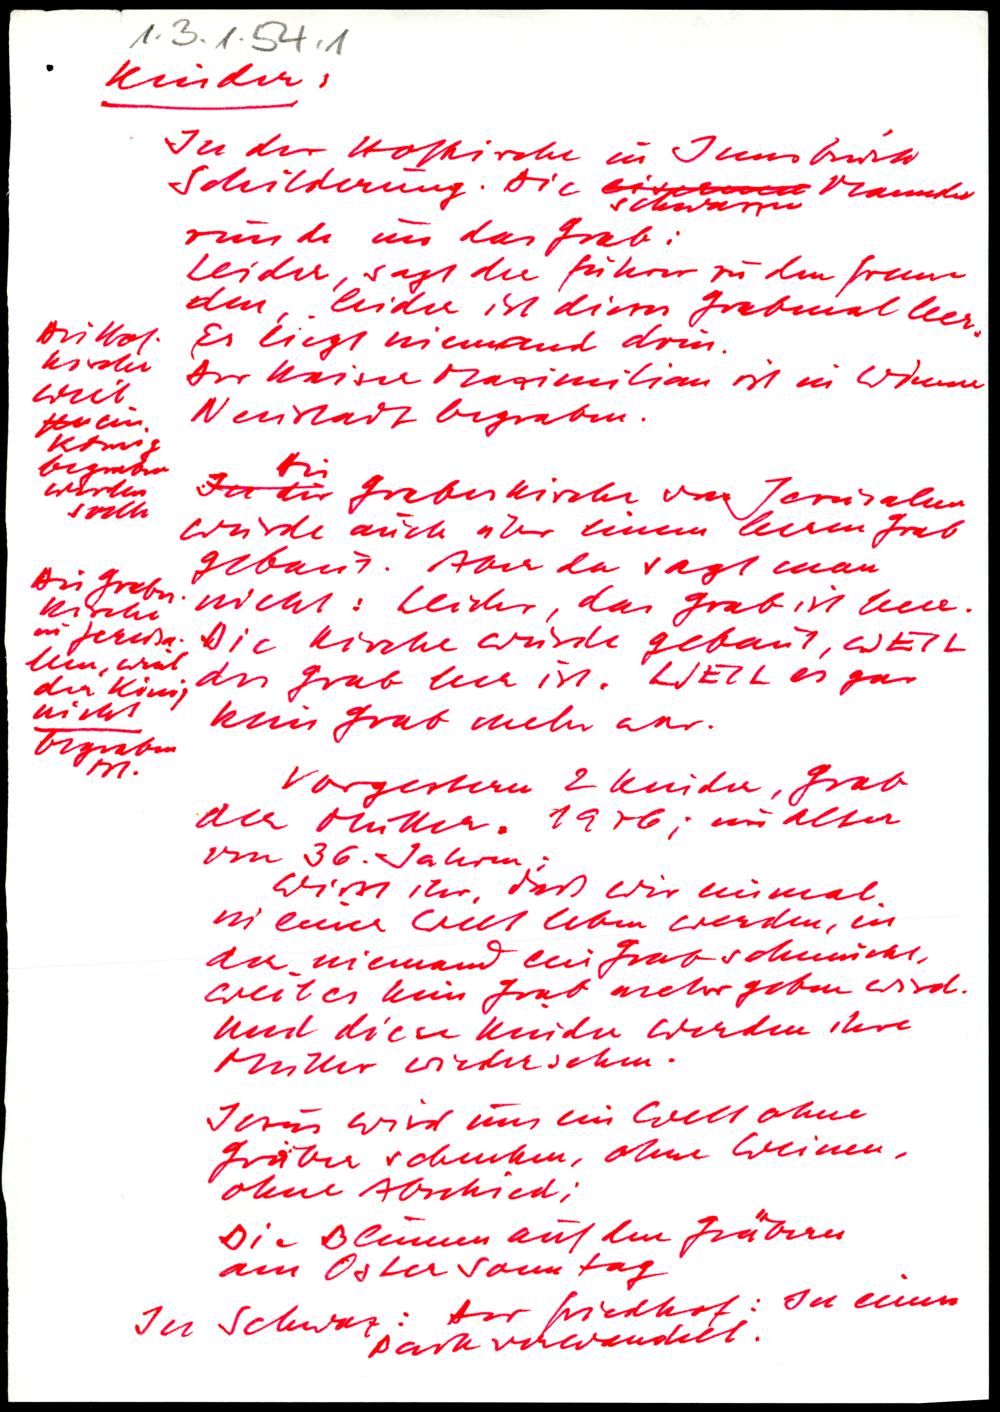 1.3.1.54.1
Kinder:
In der Hofkirche in Innsbruck
Schilderung. Die eisernen Mander
schwarzen
runde um das Grab:
Leider, sagt der Führer zu den Frem
den, leider ist dieses Grabmal leer.
Es liegt niemand drin.
Der Kaiser Maximilian ist in Wiener
Neustadt begraben.
Die Hof.
kirche
weil
ein
König
begraben
werden
sollte
Die
In der Grabeskirche von Jerusalem
wurde auch über einem leeren Grab
gebaut. Aber da sagt man
nicht: Leider, das Grab ist leer.
Die Kirche wurde gebaut, WEIL
das Grab leer ist. WEIL es gar
kein Grab mehr war.
Die Grabes.
kirche
in Jerusa.
lem, weil
der König
nicht
begraben
ist.
Vorgestern 2 Kinder, Grab
der Mutter. 1976; im Alter
von 36. Jahren;
Wisst ihr, daß wir einmal
in einer Welt leben werden, in
der niemand ein Grab schmückt,
weil es kein Grab mehr geben wird.
Und diese Kinder werden ihre
Mutter wiedersehen.
Jesus wird uns ein Welt ohne
Gräber schenken, ohne Weinen,
ohne Abschied;
Die Blumen auf den Gräbern
am Ostersonntag
In Schwaz: Der Friedhof: In einen
Park verwandelt.